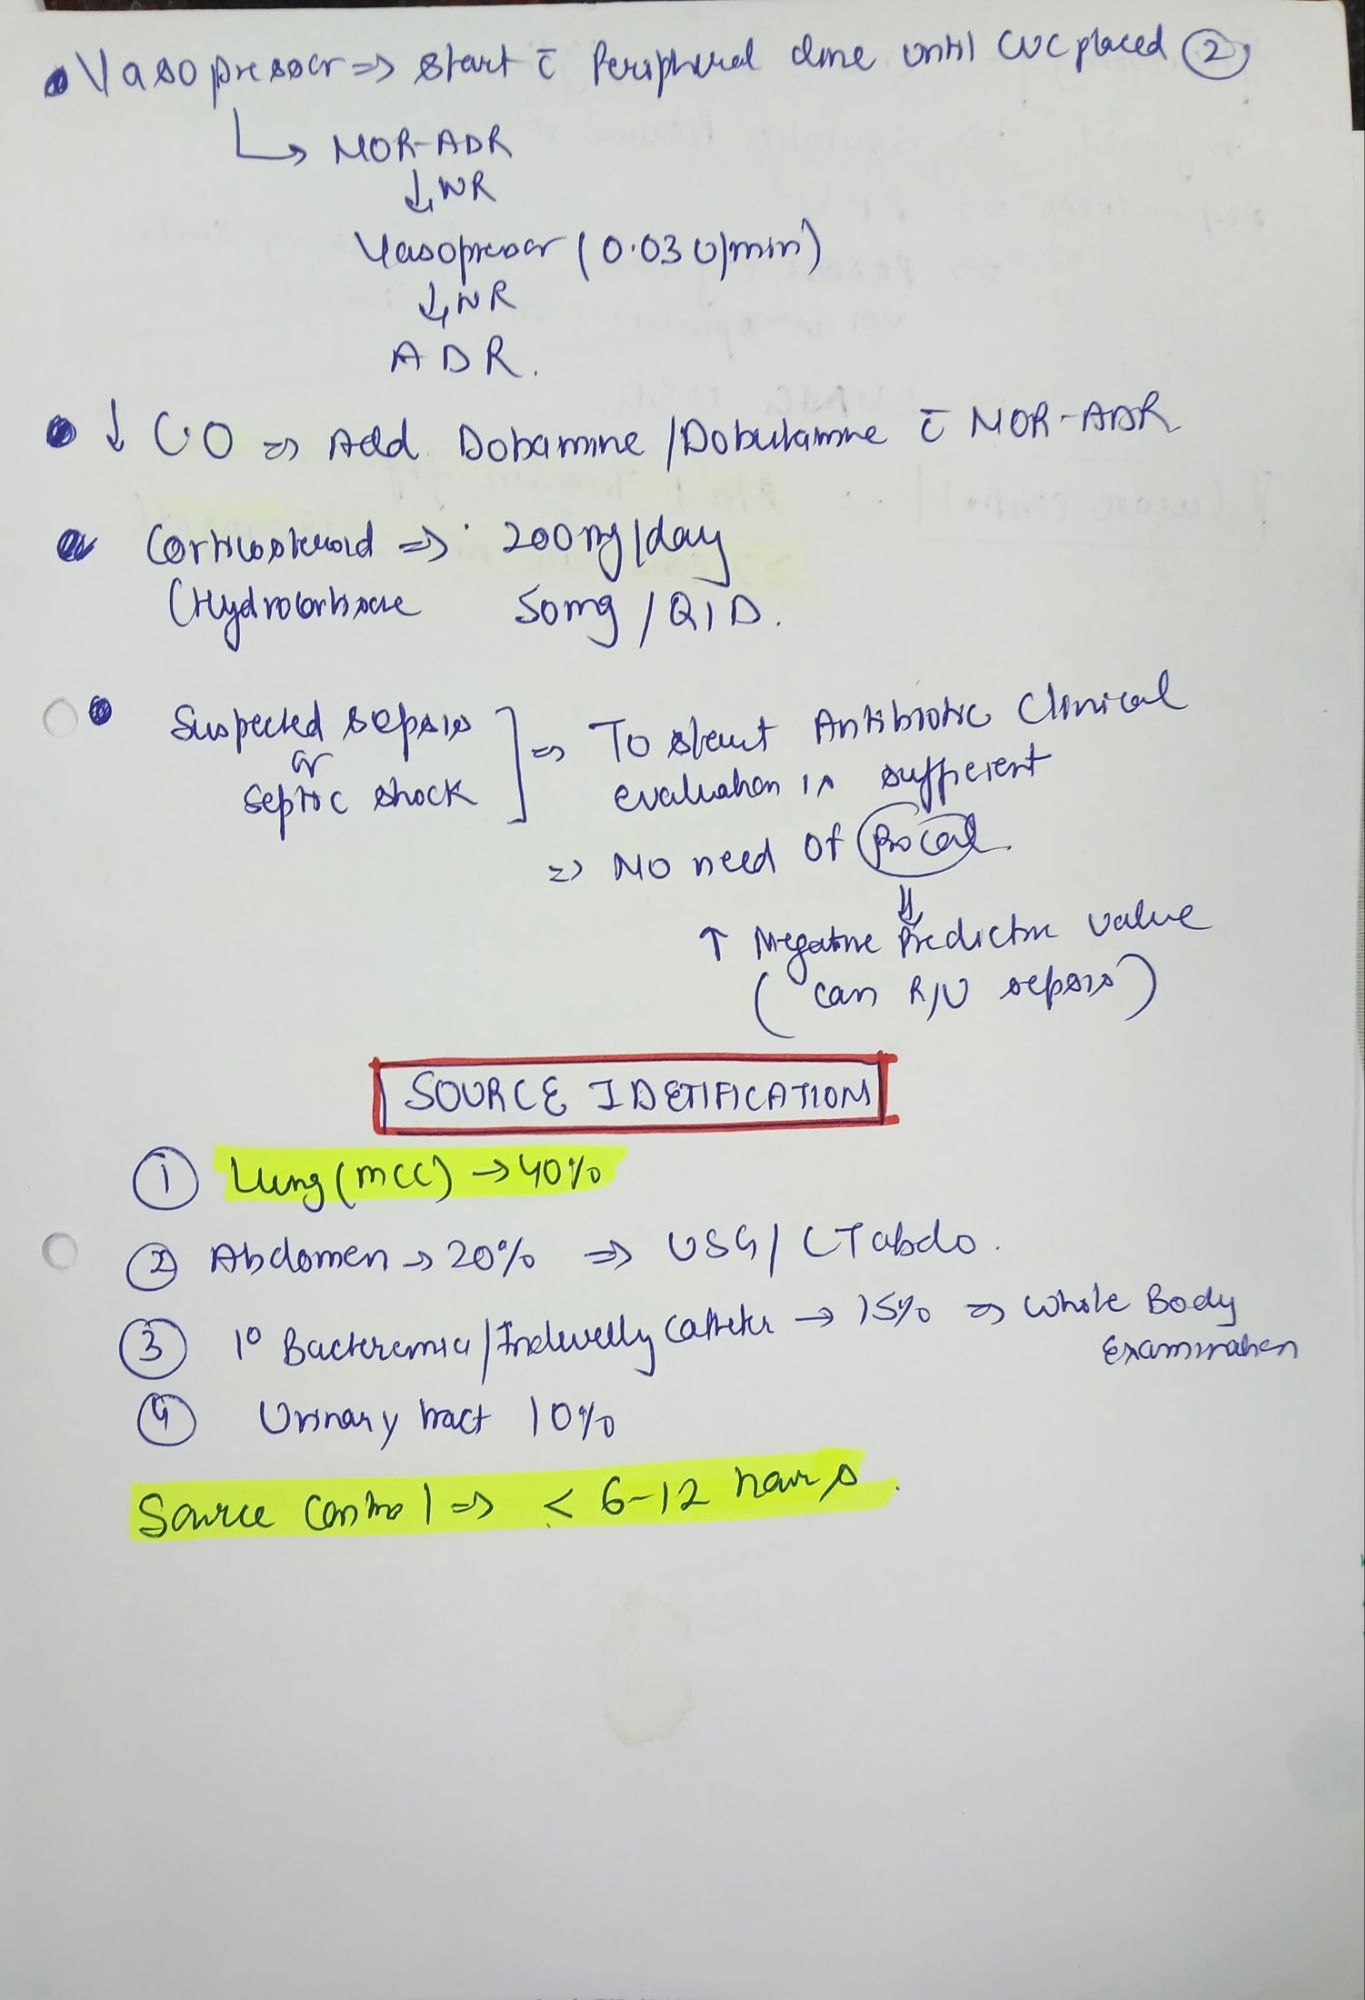 • Vasopressor ⇒ start c̄ Peripheral line until CVC placed ②
↳ NOR-ADR
↓ NR
Vasopressor (0.03 U/min)
↓ NR
ADR.
• ↓ CO ⇒ Add Dobamine / Dobutamine c̄ NOR-ADR
• Corticosteroid ⇒ 200mg/day
(Hydrocortisone 50mg / QID.
• Suspected sepsis ⇒ To start Antibiotic Clinical
or evaluation is sufficient
septic shock
⇒ No need of Procal
⇓
↑ Negative Predictive value
(can R/O sepsis)
SOURCE IDETIFICATION
① Lung (mcc) → 40%
② Abdomen → 20% ⇒ USG / CT abdo.
③ 1° Bacteremia / Indwelly Catheter → 15% ⇒ Whole Body
Examination
④ Urinary tract 10%
Source Control ⇒ < 6-12 hours.